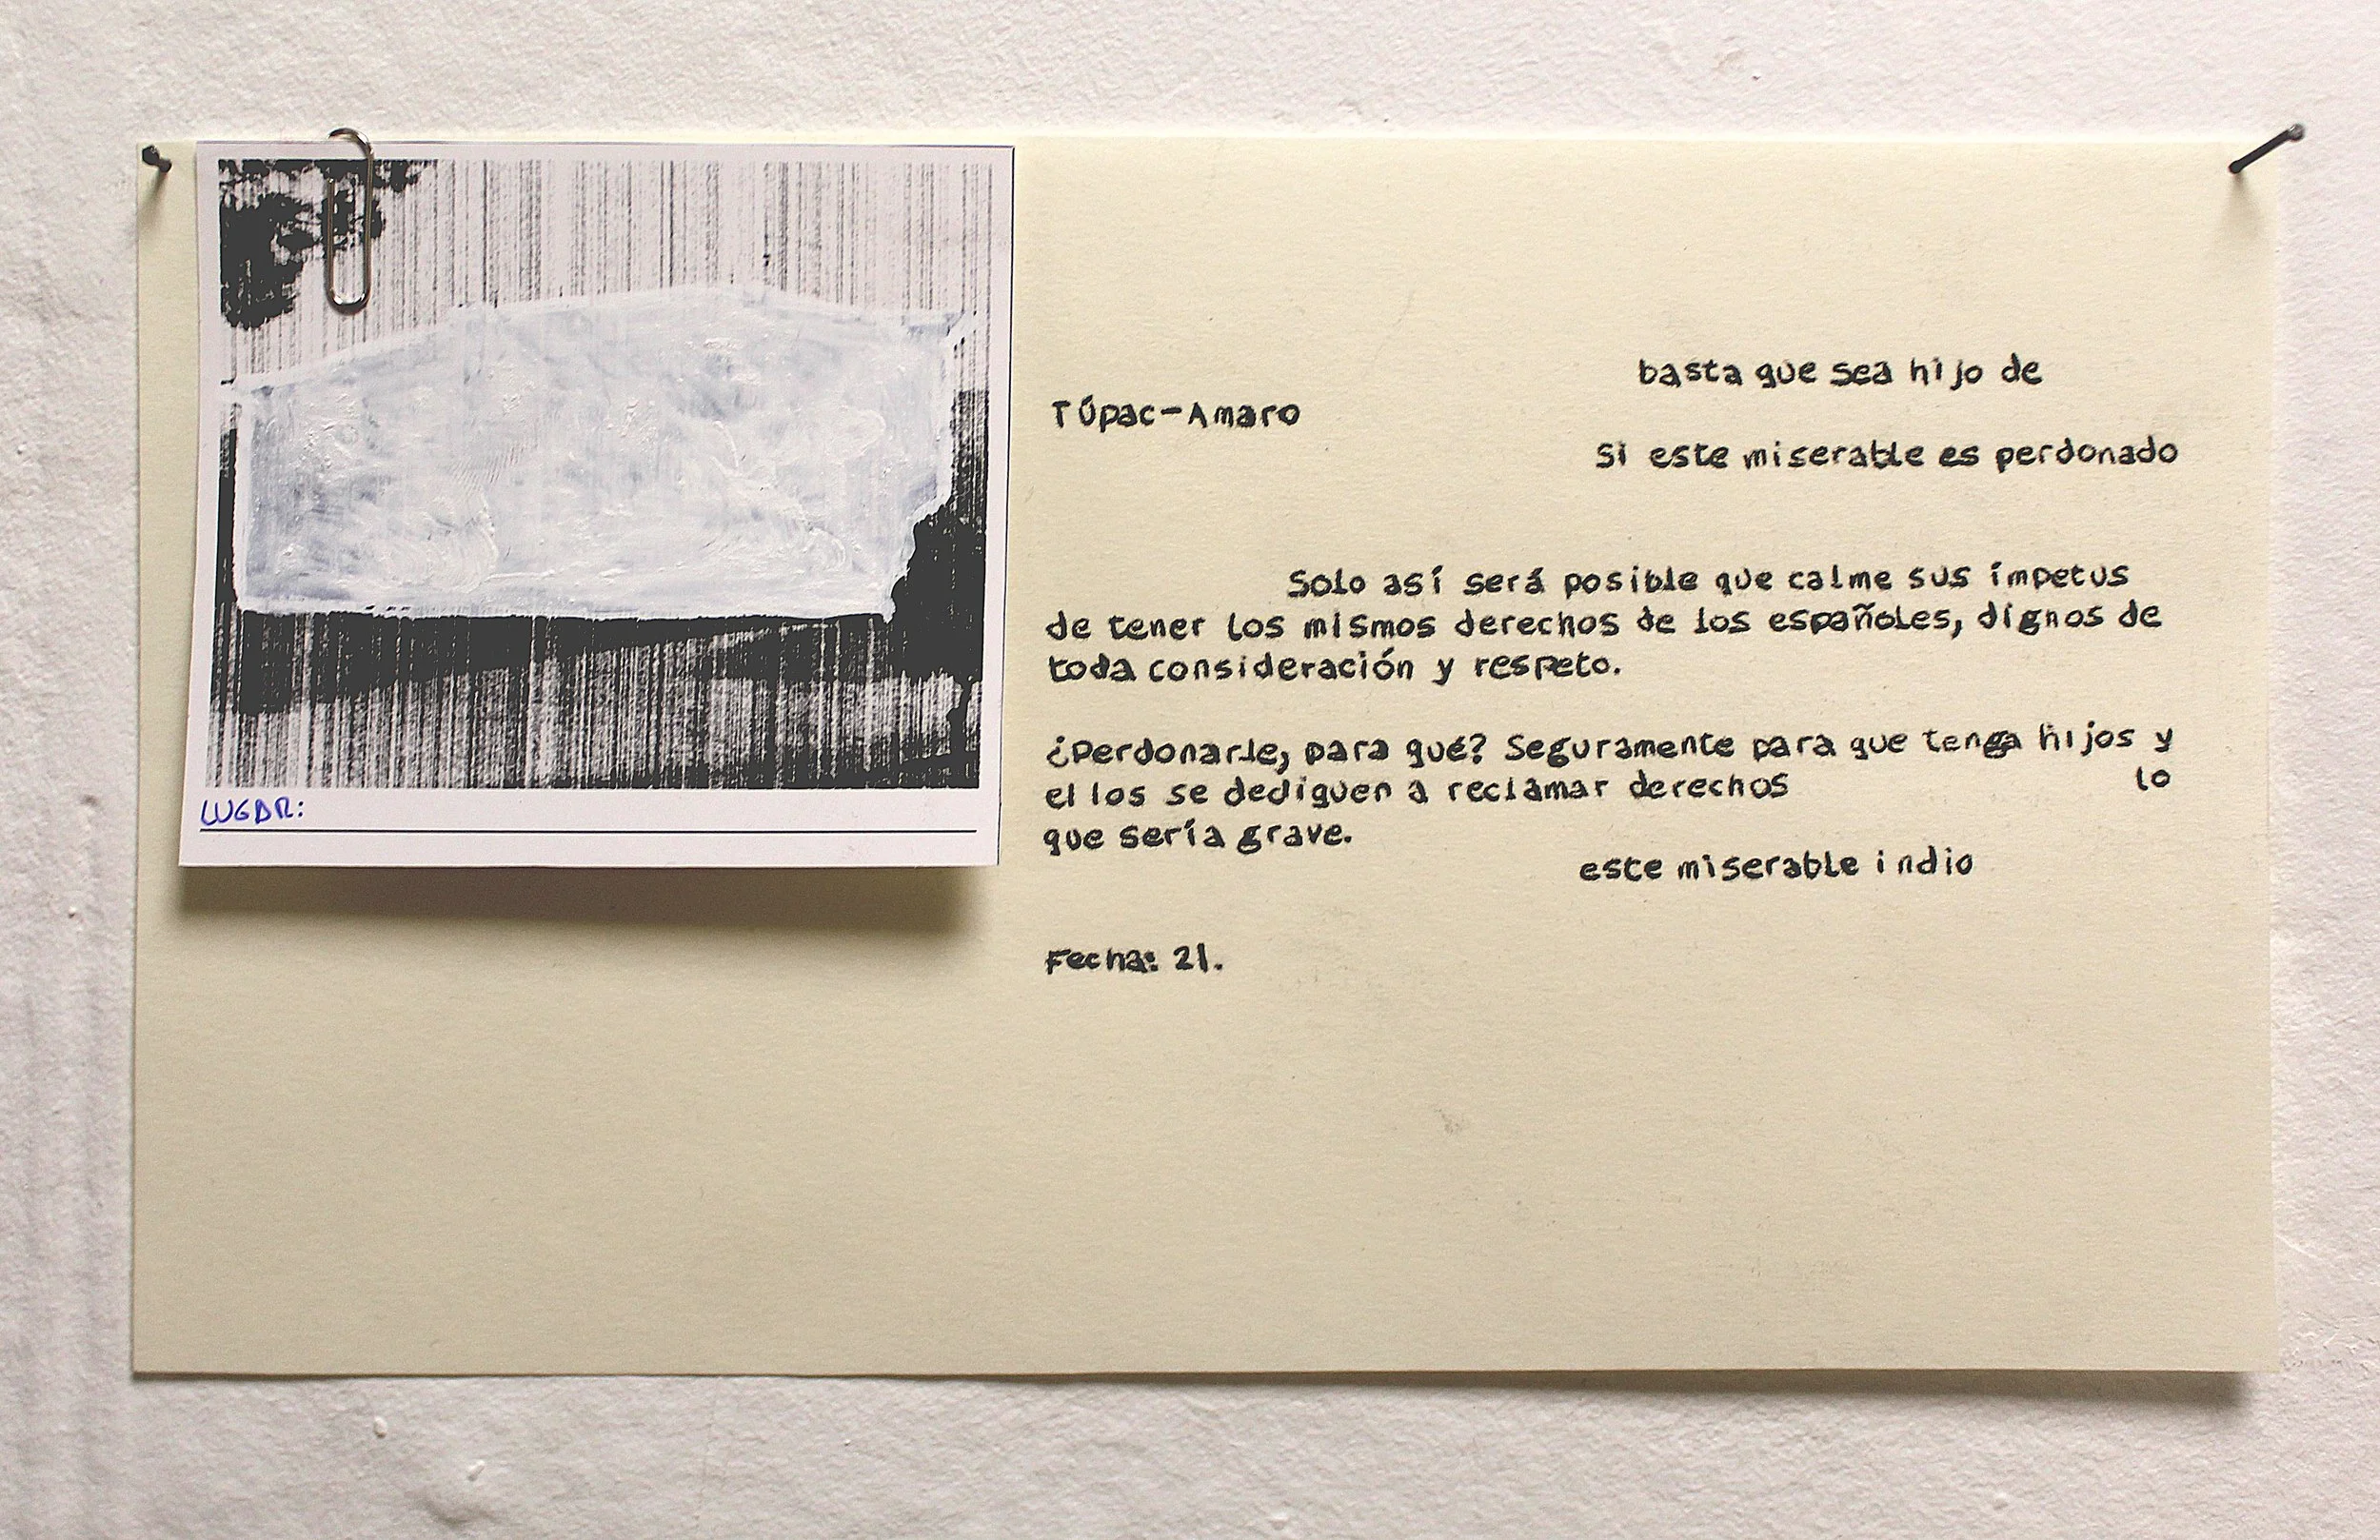 LUGAR:
basta que sea hijo de
Túpac-Amaro
Si este miserable es perdonado
Solo así será posible que calme sus ímpetus
de tener los mismos derechos de los españoles, dignos de
toda consideración y respeto.
¿Perdonarle, para qué? Seguramente para que tenga hijos y
ellos se dediquen a reclamar derechos lo
que sería grave.
este miserable indio
Fecha: 21.